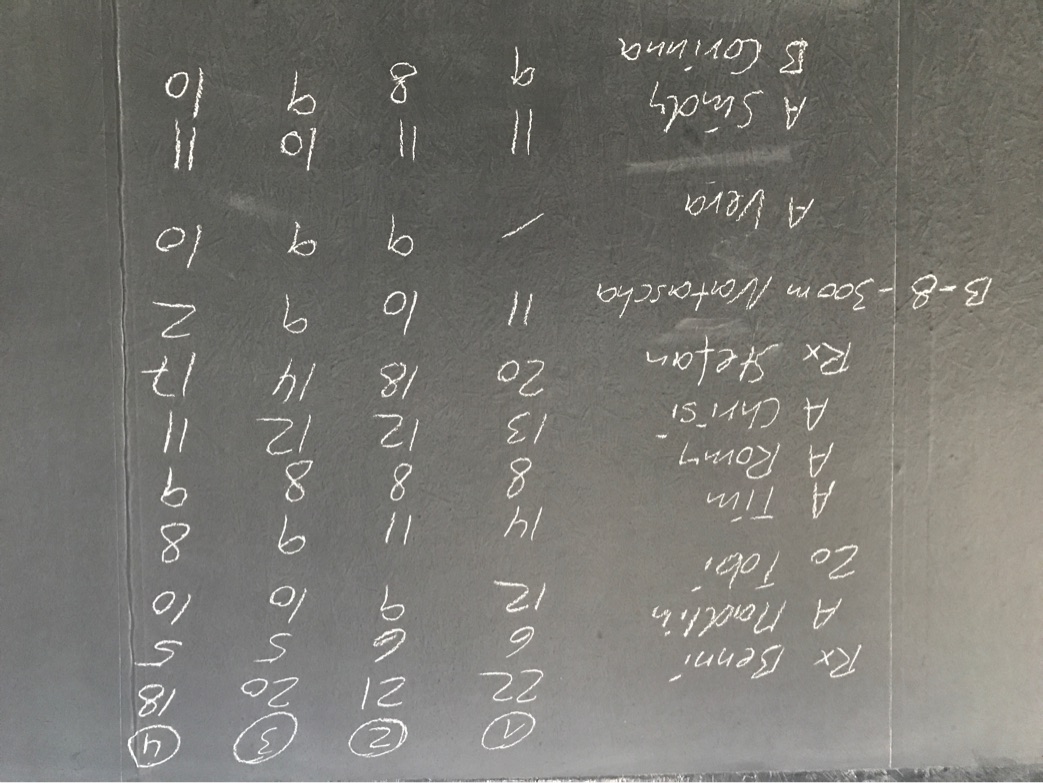 1 2 3 4
Rx Benni 22 21 20 18
A Madlin 6 6 5 5
20 Tobi 12 9 10 10
A Tim 14 11 9 8
A Romy 8 8 8 9
A Chrisi 13 12 12 11
Rx Stefan 20 18 14 17
B-8-300m Natascha 11 10 9 2
A Vera / 9 9 10
A Sindy 11 11 10 11
B Corinna 9 8 9 10